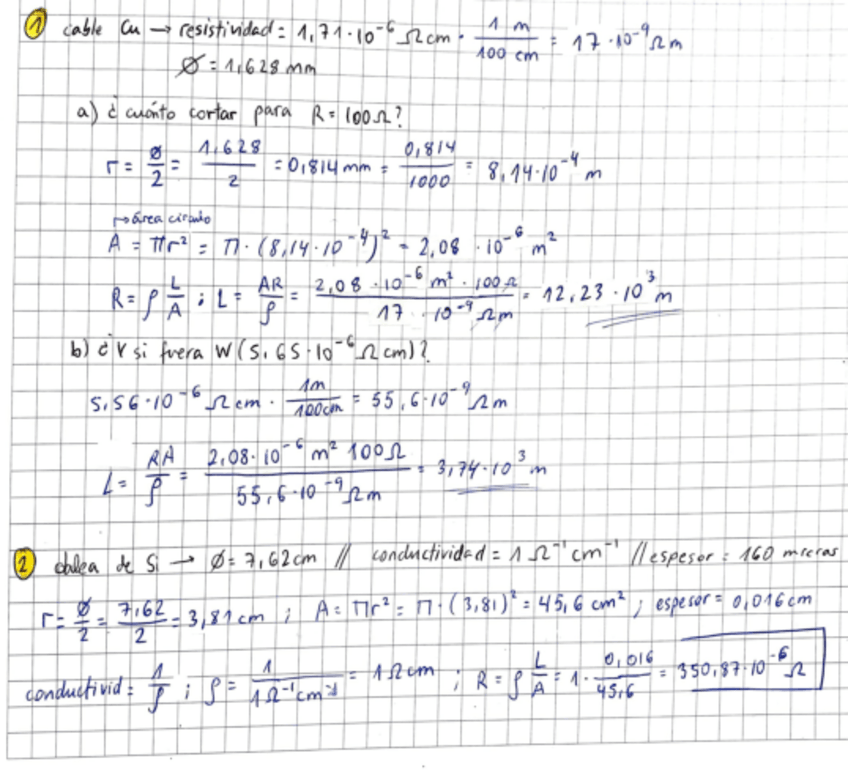 ① cable Cu → resistividad = 1,71·10⁻⁶ Ωcm · 1 m / 100 cm = 17·10⁻⁹ Ωm
Ø = 1,628 mm
a) ¿cuánto cortar para R = 100Ω?
r = Ø/2 = 1,628/2 = 0,814 mm = 0,814/1000 = 8,14·10⁻⁴ m
↱ área círculo
A = πr² = π · (8,14·10⁻⁴)² = 2,08 · 10⁻⁶ m²
R = ρ L/A ; L = AR/ρ = 2,08 · 10⁻⁶ m² · 100Ω / 17 · 10⁻⁹ Ωm = 12,23 · 10³ m
b) ¿Y si fuera W (5,65·10⁻⁶ Ωcm)?
5,56·10⁻⁶ Ωcm · 1m/100cm = 55,6·10⁻⁹ Ωm
L = RA/ρ = 2,08·10⁻⁶ m² 100Ω / 55,6·10⁻⁹ Ωm = 3,74·10³ m
② oblea de Si → Ø = 7,62 cm // conductividad = 1 Ω⁻¹cm⁻¹ // espesor = 160 micras
r = Ø/2 = 7,62/2 = 3,81 cm ; A = πr² = π · (3,81)² = 45,6 cm² ; espesor = 0,016 cm
conductivid = 1/ρ ; ρ = 1 / 1Ω⁻¹cm⁻¹ = 1 Ωcm ; R = ρ L/A = 1 · 0,016/45,6 = 350,87·10⁻⁶ Ω